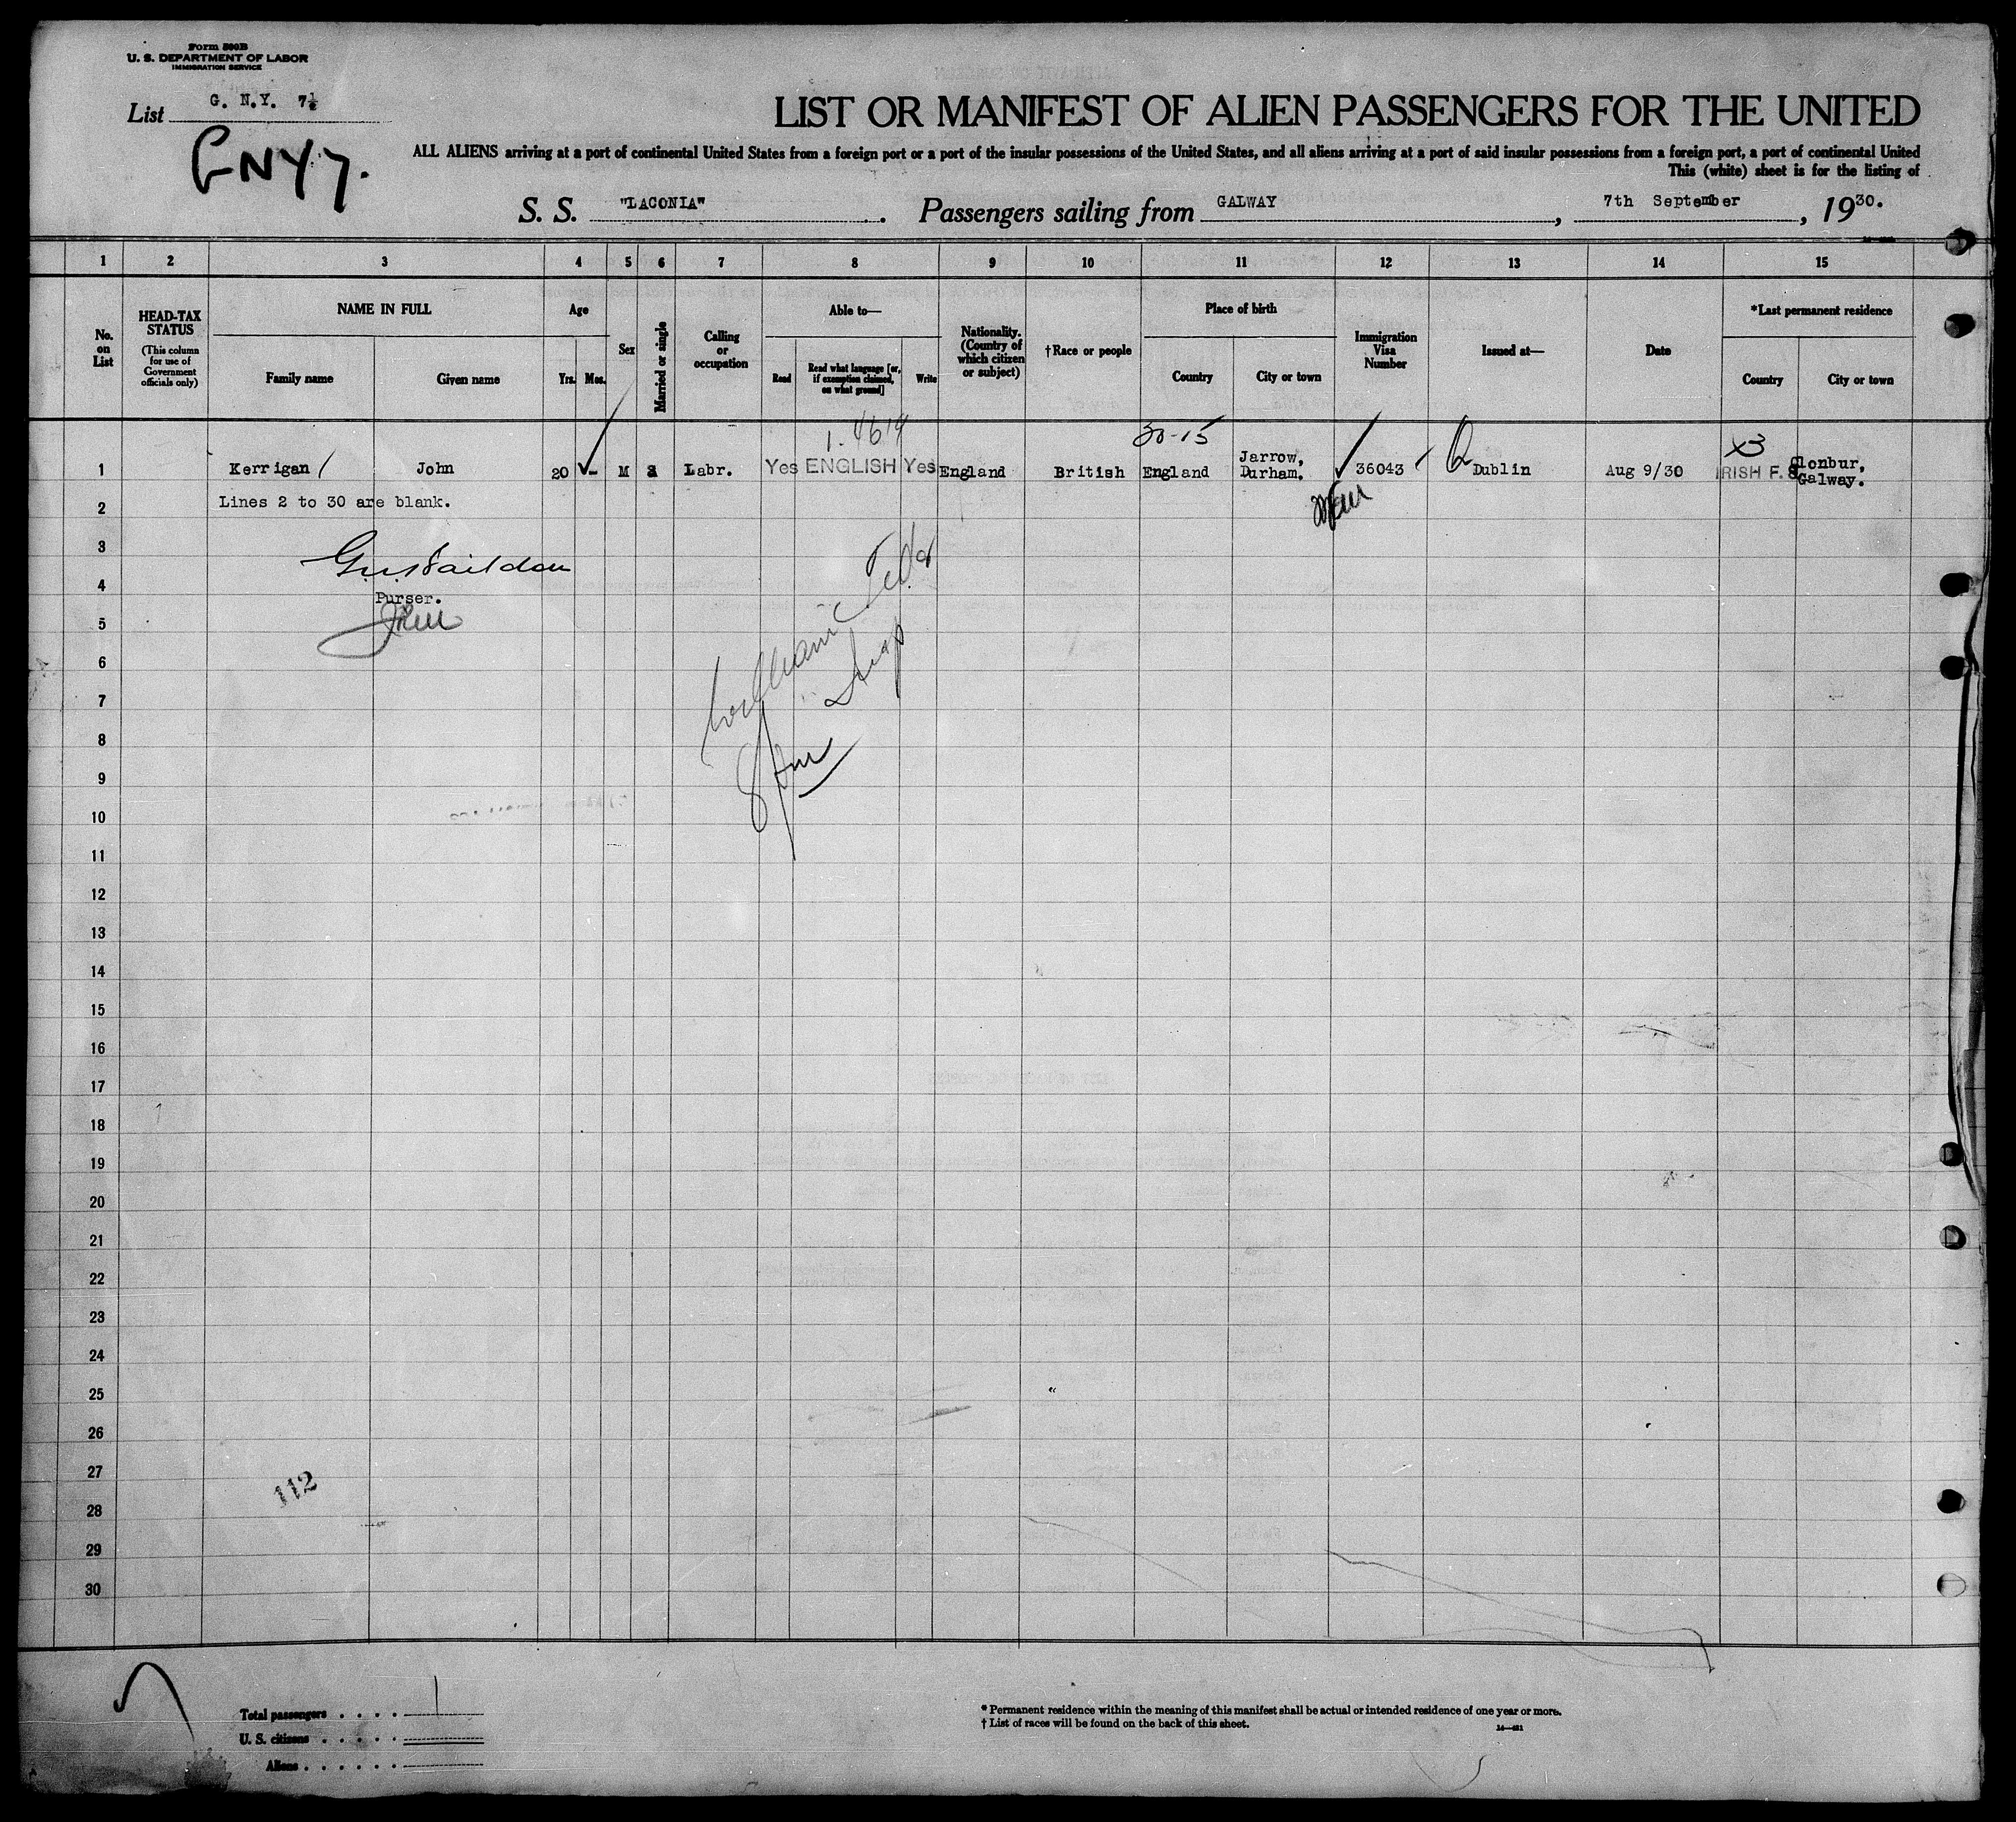 Form 500B
U. S. DEPARTMENT OF LABOR
IMMIGRATION SERVICE
List G. N.Y. 7½
GNY 7.
LIST OR MANIFEST OF ALIEN PASSENGERS FOR THE UNITED
ALL ALIENS arriving at a port of continental United States from a foreign port or a port of the insular possessions of the United States, and all aliens arriving at a port of said insular possessions from a foreign port, a port of continental United
This (white) sheet is for the listing of
S. S. "LACONIA" . Passengers sailing from GALWAY , 7th September , 1930.
1 2 3 4 5 6 7 8 9 10 11 12 13 14 15
No. on List
HEAD-TAX STATUS (This column for use of Government officials only)
NAME IN FULL
Family name Given name
Age
Yrs. Mos.
Sex
Married or single
Calling or occupation
Able to—
Read
Read what language [or, if exemption claimed, on what ground]
Write
Nationality. (Country of which citizen or subject)
†Race or people
Place of birth
Country City or town
Immigration Visa Number
Issued at—
Date
*Last permanent residence
Country City or town
30-15
X3
1 Kerrigan John 20 - M s Labr. Yes ENGLISH Yes England British England Jarrow, Durham. 36043 Dublin Aug 9/30 IRISH F. S Clonbur, Galway.
Lines 2 to 30 are blank.
2
3
4
Purser.
5
6
William
7
8
9
10
11
12
13
14
15
16
17
18
19
20
21
22
23
24
25
26
27
112
28
29
30
Total passengers . . . . 1
U. S. citizens . . . . .
Aliens . . . . . .
* Permanent residence within the meaning of this manifest shall be actual or intended residence of one year or more.
† List of races will be found on the back of this sheet.